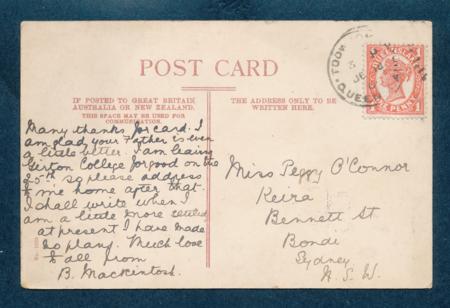 POST CARD
IF POSTED TO GREAT BRITAIN
AUSTRALIA OR NEW ZEALAND.
THIS SPACE MAY BE USED FOR
COMMUNICATION.
THE ADDRESS ONLY TO BE
WRITTEN HERE.
Many thanks for card. I
am glad your Father is even
a little better. I am leaving
Girton College for good on the
25th so please address
to me home after that.
I shall write when I
am a little more settled
at present I have made
no plans. Much love
to all from
B. Mackintosh
Miss Peggy O'Connor
Keira
Bennett St
Bondi
Sydney
N.S.W.